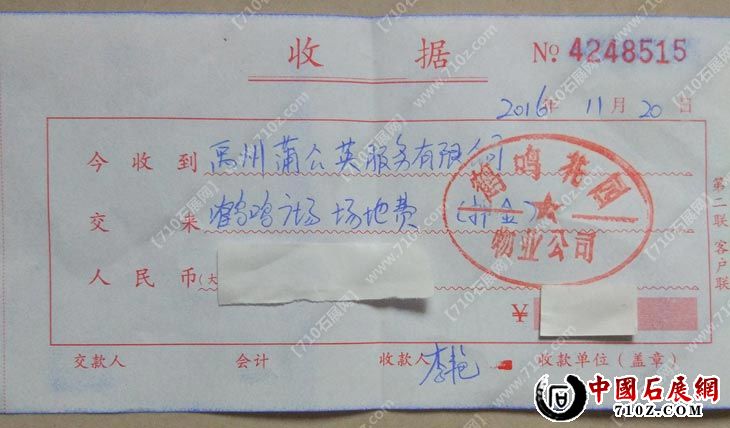 收据
№ 4248515
2016年 11月 20日
今收到 禹州蒲公英服务有限公司
交来 鹤鸣广场 场地费 (押金)
鹤鸣花园
物业公司
人民币(大
¥
交款人 会计 收款人 李艳 收款单位(盖章)
第二联 客户联
【710石展网】
www.710z.com
中國石展網
710Z.COM